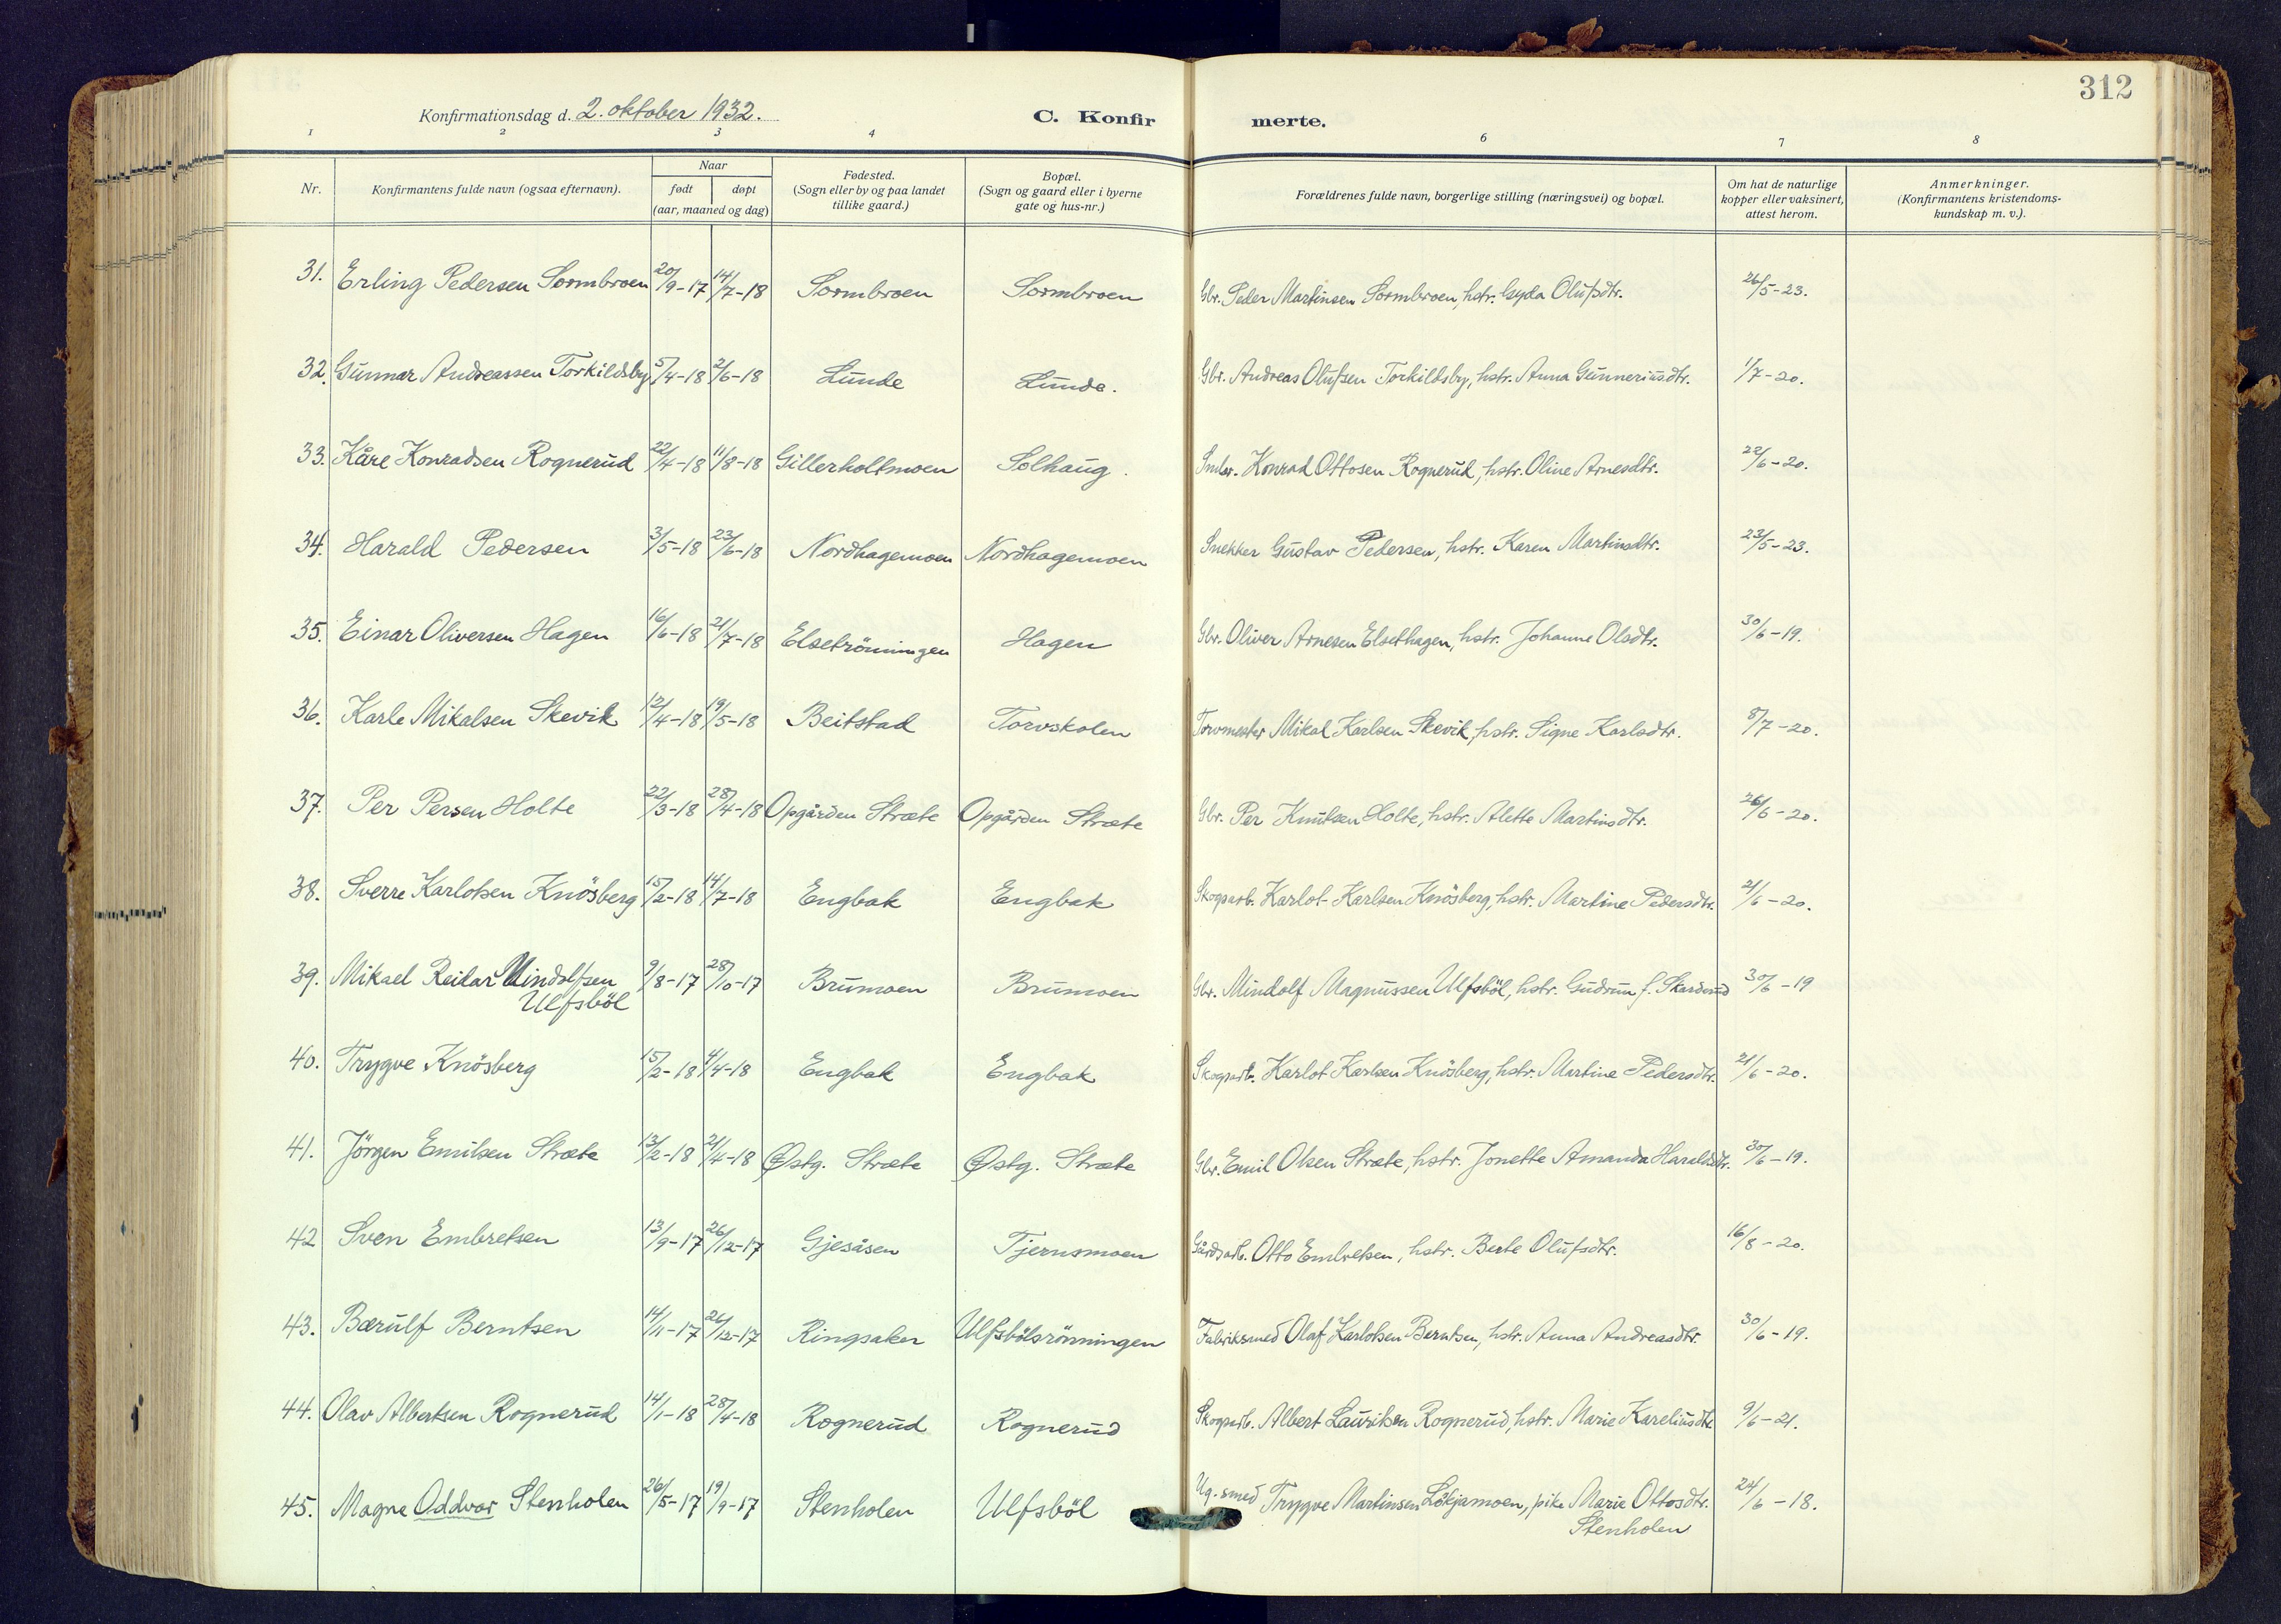 312
Konfirmationsdag d. 2. oktober 1932.
C. Konfirmerte.
1 2 3 4 6 7 8
Nr. Konfirmantens fulde navn (ogsaa efternavn). Naar født døpt (aar, maaned og dag) Fødested. (Sogn eller by og paa landet tillike gaard.) Bopæl. (Sogn og gaard eller i byerne gate og hus-nr.) Forældrenes fulde navn, borgerlige stilling (næringsvei) og bopæl. Om hat de naturlige kopper eller vaksinert, attest herom. Anmerkninger. (Konfirmantens kristendomskundskap m. v.).
31. Erling Pedersen Sormbroen 20/9-17 14/7-18 Sormbroen Sormbroen Gbr. Peder Martinsen Sormbroen, hstr. Gyda Olufsdtr. 26/5-23.
32. Gunnar Andreassen Torkildsby 5/4-18 2/6-18 Lunde Lunde. Gbr. Andreas Olufsen Torkildsby, hstr. Anna Gunneriusdtr. 1/7-20.
33. Kåre Konradsen Rognerud 22/4-18 11/8-18 Gillerholtmoen Solhaug. Smbr. Konrad Ottosen Rognerud, hstr. Oline Arnesdtr. 22/6-20.
34. Harald Pedersen 3/5-18 23/6-18 Nordhagemoen Nordhagemoen Snekker Gustav Pedersen, hstr. Karen Martinsdtr. 23/5-23.
35. Einar Oliversen Hagen 16/6-18 21/7-18 Elsetrönningen Hagen Gbr. Oliver Arnesen Elsethagen, hstr. Johanne Olsdtr. 30/6-19.
36. Karle Mikalsen Skevik 12/4-18 19/5-18 Beitstad Torvskolen Torvmester Mikal Karlsen Skevik, hstr. Signe Karlsdtr. 8/7-20.
37. Per Persen Holte 22/3-18 28/4-18 Opgården Stræte Opgården Stræte Gbr. Per Knutsen Holte, hstr. Alette Martinsdtr. 26/6-20.
38. Sverre Karlotsen Knösberg 15/2-18 14/7-18 Engbak Engbak Skogsarb. Karlot Karlsen Knösberg, hstr. Martine Pedersdtr. 21/6-20.
39. Mikael Reidar Mindolfsen Ulfsböl 9/8-17 28/10-17 Brumoen Brumoen Gbr. Mindolf Magnussen Ulfsböl, hstr. Gudrun f. Skarderud 30/6-19
40. Trygve Knösberg 15/2-18 4/4-18 Engbak Engbak Skogsarb. Karlot Karlsen Knösberg, hstr. Martine Pedersdtr. 21/6-20.
41. Jörgen Emilsen Stræte 13/2-18 21/4-18 Østg. Stræte Østg. Stræte Gbr. Emil Olsen Stræte, hstr. Jonette Amanda Haraldsdtr. 30/6-19.
42 Sven Embretsen 13/9-17 26/12-17 Gjesåsen Tjernsmoen Gårdsarb. Otto Embretsen, hstr. Berte Olufsdtr. 16/8-20.
43. Bærulf Berntsen 14/11-17 26/12-17 Ringsaker Ulfsbölsrönningen Fabriksmed Olaf Karlotsen Berntsen, hstr. Anna Andreasdtr. 30/6-19.
44. Olav Albertsen Rognerud 14/1-18 28/4-18 Rognerud Rognerud Skogsarb. Albert Lauritsen Rognerud, hstr. Marie Kareliusdtr 9/6-21.
45. Magne Oddvar Stenholen 26/5-17 19/9-17 Stenholen Ulfsböl Ug. smed Trygve Martinsen Lökjamoen, pike Marie Ottosdtr. Stenholen 24/6-18.